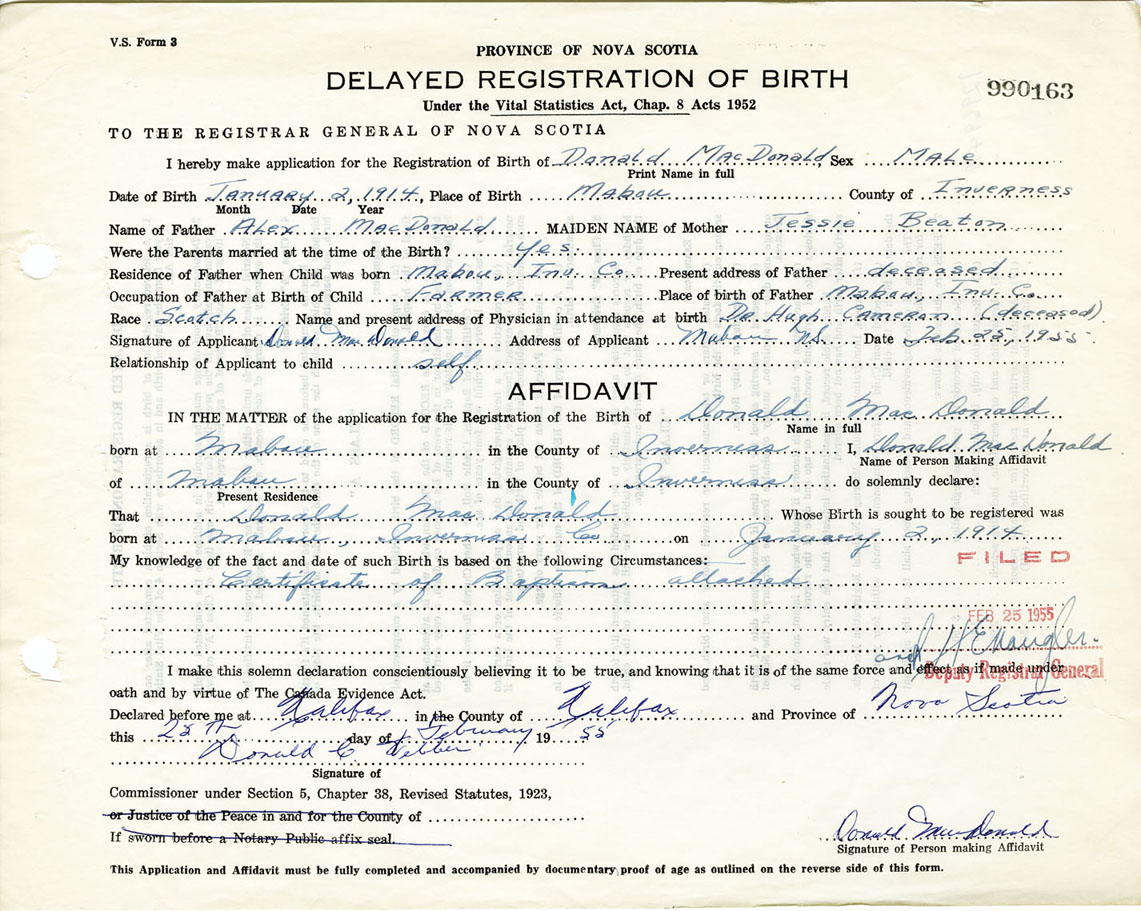 V.S. Form 3
PROVINCE OF NOVA SCOTIA
DELAYED REGISTRATION OF BIRTH
990163
Under the Vital Statistics Act, Chap. 8 Acts 1952
TO THE REGISTRAR GENERAL OF NOVA SCOTIA
I hereby make application for the Registration of Birth of Donald MacDonald, Sex Male
Print Name in full
Date of Birth January 2, 1914, Place of Birth Mabou County of Inverness
Month Date Year
Name of Father Alex MacDonald MAIDEN NAME of Mother Jessie Beaton
Were the Parents married at the time of the Birth? yes.
Residence of Father when Child was born Mabou, Inv. Co. Present address of Father deceased
Occupation of Father at Birth of Child Farmer Place of birth of Father Mabou, Inv. Co.
Race Scotch Name and present address of Physician in attendance at birth Dr. Hugh Cameron (deceased)
Signature of Applicant Donald MacDonald Address of Applicant Mabou N.S. Date Feb. 25, 1955
Relationship of Applicant to child self
AFFIDAVIT
IN THE MATTER of the application for the Registration of the Birth of Donald MacDonald
Name in full
born at Mabou in the County of Inverness I, Donald MacDonald
Name of Person Making Affidavit
of Mabou in the County of Inverness do solemnly declare:
Present Residence
That Donald MacDonald Whose Birth is sought to be registered was
born at Mabou, Inverness Co on January 2, 1914
My knowledge of the fact and date of such Birth is based on the following Circumstances:
FILED
Certificate of Baptism attached
FEB 25 1955
I make this solemn declaration conscientiously believing it to be true, and knowing that it is of the same force and effect as if made under
Deputy Registrar General
oath and by virtue of The Canada Evidence Act.
Declared before me at Halifax in the County of Halifax and Province of Nova Scotia
this 25th day of February 1955
Donald C.
Signature of
Commissioner under Section 5, Chapter 38, Revised Statutes, 1923,
or Justice of the Peace in and for the County of
If sworn before a Notary Public affix seal.
Donald MacDonald
Signature of Person making Affidavit
This Application and Affidavit must be fully completed and accompanied by documentary proof of age as outlined on the reverse side of this form.